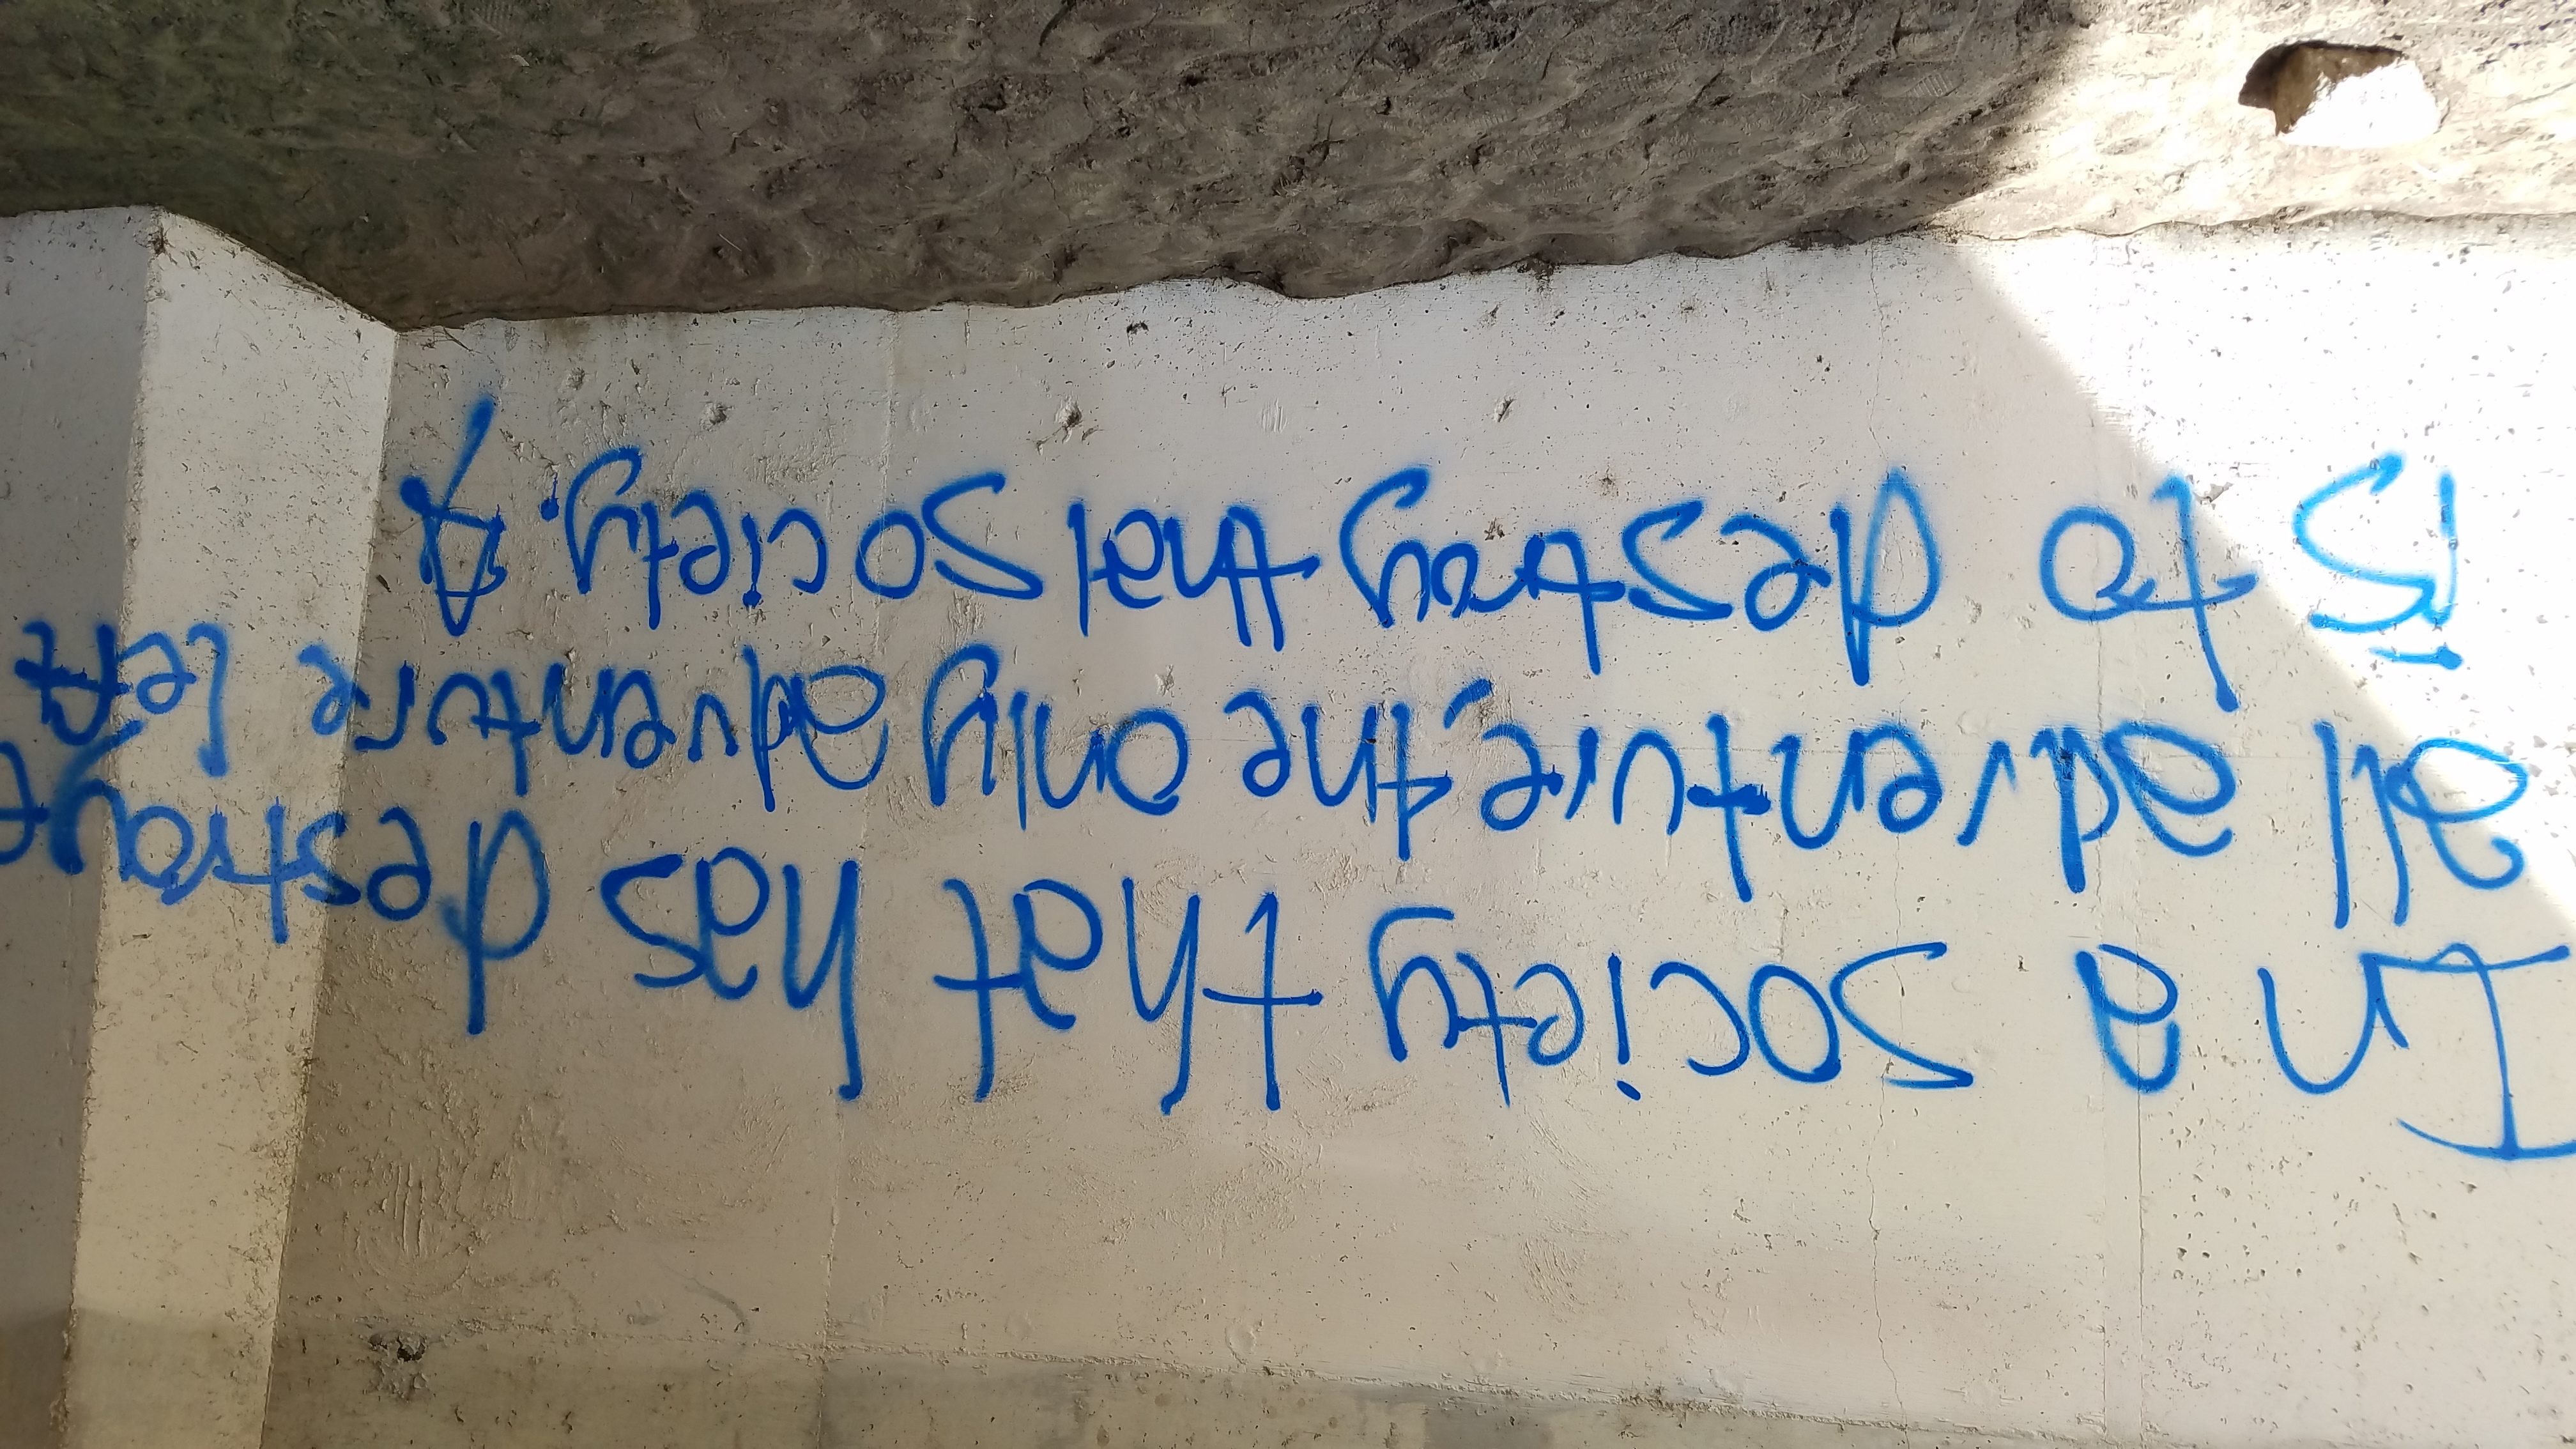 In a society that has destroyt
all adventure, the only adventure left
is to destroy that society. A